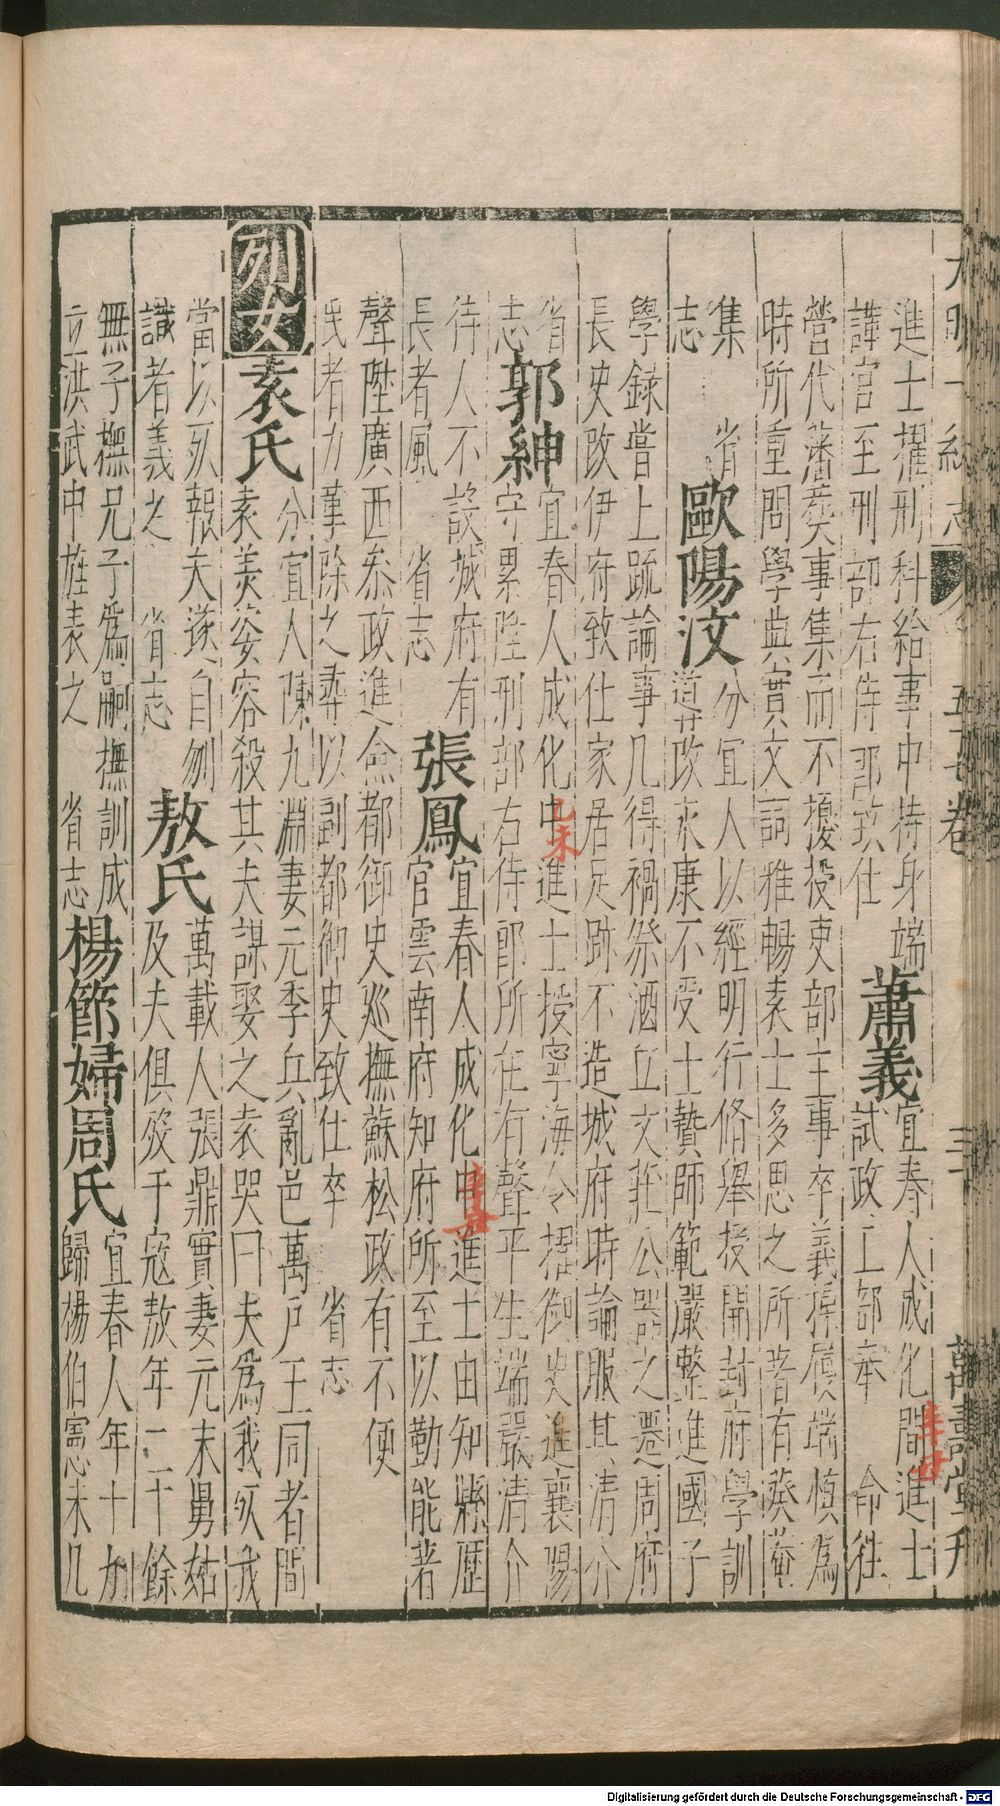 大明一統志 五十七卷 三十 萬壽堂刊
進士擢刑科給事中持身端
講官至刑部右侍郎致仕
蕭義
宜春人成化間進士
辛丑
試政工部奉 命往
營代藩葬事集而不擾授吏部主事卒義操履端慎為
時所重問學典實文詞雅暢素士多思之所著有葵菴
集 省
志
歐陽汶
分宜人以經明行脩舉授開封府學訓
導改永康不受士贄師範嚴整進國子
學錄嘗上疏論事几得禍祭酒丘文莊公器之遷周府
長史改伊府致仕家居足跡不造城府時論服其清介
省
志
郭紳
宜春人成化中進士授寧海令擢御史進襄陽
乙未
守累陞刑部右侍郎所在有聲平生端嚴清介
待人不設城府有
長者風 省志
張鳳
宜春人成化中進士由知縣歷
辛丑
官雲南府知府所至以勤能著
聲陞廣西叅政進僉都御史巡撫蘇松政有不便
民者力革除之尋以副都御史致仕卒 省志
列女
袁氏
分宜人陳九淵妻元季兵亂邑萬戶王同者間
袁美姿容殺其夫謀娶之袁哭曰夫為我死我
當以死報夫遂自刎
識者義之 省志
敖氏
萬載人張鼎實妻元末舅姑
及夫俱歿于寇敖年二十餘
無子撫兄子為嗣撫訓成
立洪武中旌表之 省志
楊節婦周氏
宜春人年十九
歸楊伯憲未几
Digitalisierung gefördert durch die Deutsche Forschungsgemeinschaft - DFG